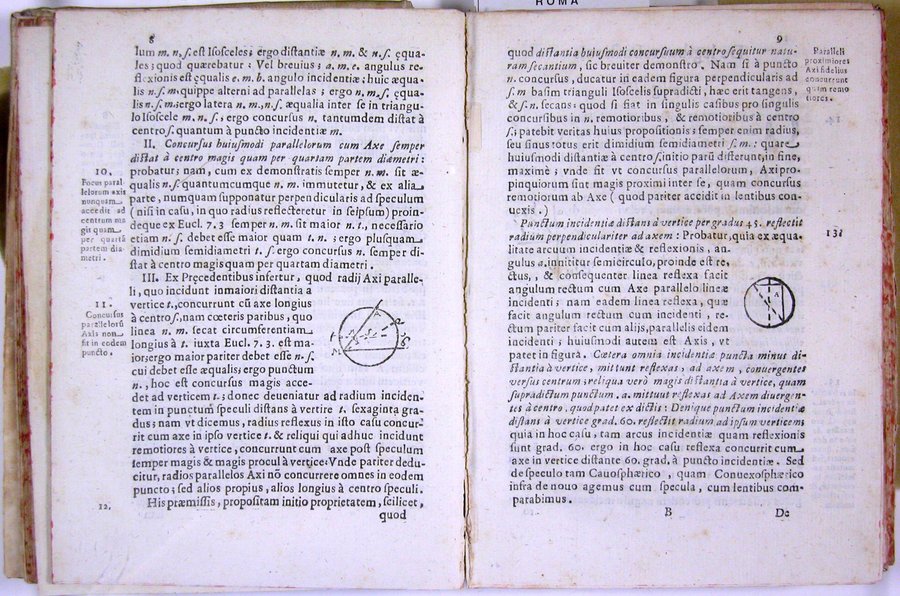 ROMA
8
lum m. n. s. est Isosceles; ergo distantiæ n. m. & n. s. ęqua-
les; quod quærebatur; Vel breuius; a. m. e. angulus re-
flexionis est ęqualis e. m. b. angulo incidentiæ; huic æqua-
lis n. s. m. quippe alterni ad parallelas; ergo n. m. s. ęqua-
lis n. s. m. ergo latera n. m., n. s. æqualia inter se in triangu-
lo Isoscele m. n. s.; ergo concursus n. tantumdem distat à
centro s. quantum à puncto incidentiæ m.
II. Concursus huiusmodi parallelorum cum Axe semper
distat à centro magis quam per quartam partem diametri:
probatur; nam, cum ex demonstratis semper n. m. sit æ-
qualis n. s. quantumcumque n. m. immutetur, & ex alia
parte, numquam supponatur perpendicularis ad speculum
( nisi in casu, in quo radius reflecteretur in seipsum) proin-
deque ex Eucl. 7. 3 semper n. m. sit maior n. t., necessario
etiam n. s. debet esse maior quam t. n. ; ergo plusquam
dimidium semidiametri t. s. ergo concursus n. semper di-
stat à centro magis quam per quartam diametri.
10.
Focus paral
lelorum axis
nunquam
accedit ad
centrum ma
gis quam
per quartā
partem dia-
metri.
III. Ex Pręcedentibus infertur, quod radij Axi paralle-
li, quo incidunt in maiori distantia a
vertice t., concurrunt cū axe longius
à centro s., nam cœteris paribus, quo
linea n. m. secat circumferentiam
longius à t. iuxta Eucl. 7. 3. est ma-
ior; ergo maior pariter debet esse n. s.
cui debet esse æqualis; ergo punctum
n. , hoc est concursus magis acce-
det ad verticem t. ; donec deueniatur ad radium inciden-
tem in punctum speculi distans à vertire t. sexaginta gra-
dus; nam vt dicemus, radius reflexus in isto casu concur-
rit cum axe in ipso vertice t. & reliqui qui adhuc incidunt
remotiores à vertice, concurrunt cum axe post speculum
semper magis & magis procul à vertice: Vnde pariter dedu-
citur, radios parallelos Axi nō concurrere omnes in eodem
puncto; sed alios propius, alios longius à centro speculi.
11.
Concursus
parallelorū
Axis non
fit in eodem
puncto.
12.
His præmissis, propositam initio proprietatem, scilicet,
quod
9
quod distantia huiusmodi concursuum à centro sequitur natu-
ram secantium, sic breuiter demonstro. Nam si à puncto
n. concursus, ducatur in eadem figura perpendicularis ad
s. m basim trianguli Isoscelis supradicti, hæc erit tangens,
& s. n. secans; quod si fiat in singulis casibus pro singulis
concursibus in n. remotioribus, & remotioribus à centro
s.; patebit veritas huius propositionis; semper enim radius,
seu sinus totus erit dimidium semidiametri s. m. : quare
huiusmodi distantiæ à centro s. initio parū differunt, in fine,
maximè ; vnde fit vt concursus parallelorum, Axi pro-
pinquiorum sint magis proximi inter se, quam concursus
remotiorum ab Axe ( quod pariter accidit in lentibus con-
uexis. )
Paralleli
proximiores
Axi fidelius
concurrunt
quàm remo
tiores.
Punctum incidentiæ distans à vertice per gradus 45. reflectit
radium perpendiculariter ad axem : Probatur, quia ex æqua-
litate arcuum incidentiæ & reflexionis, an-
gulus a. innititur semicirculo, proinde est re-
ctus, , & consequenter linea reflexa facit
angulum rectum cum Axe parallelo lineæ
incidenti ; nam eadem linea reflexa, quæ
facit angulum rectum cum incidenti , re-
ctum pariter facit cum alijs, parallelis eidem
incidenti ; huiusmodi autem est Axis , vt
patet in figura. Cætera omnia incidentiæ puncta minus di-
stantia à vertice, mittunt reflexas, ad axem , conuergentes
versus centrum; reliqua verò magis distantia à vertice, quam
supradictum punctum. a. mittunt reflexas ad Axem diuergen-
tes à centro. quod patet ex dictis : Denique punctum incidentiæ
distans à vertice grad. 60. reflectit radium ad ipsum verticem;
quia in hoc casu, tam arcus incidentiæ quam reflexionis
sunt grad. 60. ergo in hoc casu reflexa concurrit cum
axe in vertice distante 60. grad. à puncto incidentiæ. Sed
de speculo tam Cauosphærico , quam Conuexosphærico
infra de nouo agemus cum specula , cum lentibus com-
parabimus.
13.
B
De